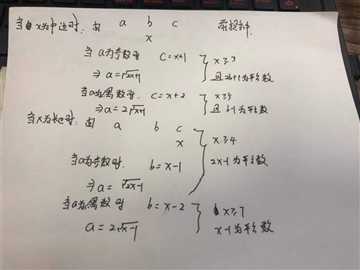 当x为中边时: 由 a b c
x
当a为奇数时 c=x+1 } x≥3
⇒ a=√2x+1 且2x+1为平方数
当a为偶数时. c=x+2 } x≥3
⇒ a=2√x+1 且x+1为平方数
当x为长边时. 由 a b c
x } x≥4
当a为奇数时. b=x-1 2x-1为平方数
⇒ a=√2x-1
当a为偶数时 b=x-2 } x≥7
a=2√x-1 x-1为平方数